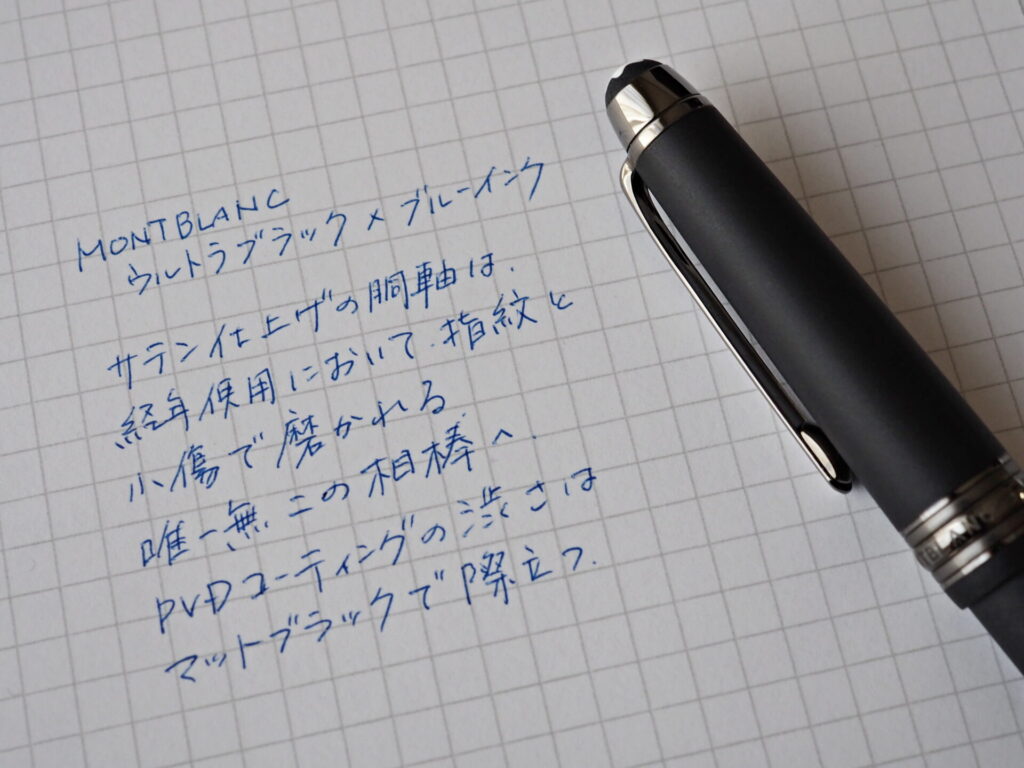 MONTBLANC
ウルトラブラック × ブルーインク
サテン仕上げの胴軸は.
経年使用において.指紋と
小傷で磨かれる.
唯一無二の相棒へ.
PVDコーティングの渋さは
マットブラックで際立つ.
TBLANC